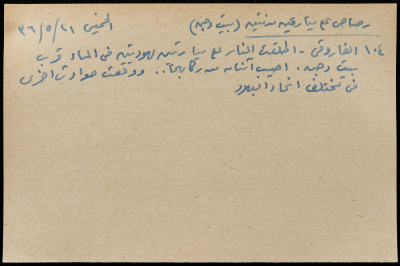 رصاص على سيارتين يهوديتين (بيت دجن) الخميس ٢١/٥/٣٦
١٠٤ الفاروقي - اطلقت النار على سيارتين يهوديتين في المساء قرب
بيت دجن. اصيب اثنان من ركابهما.. ووقعت حوادث اخرى
في مختلف انحاء البلاد